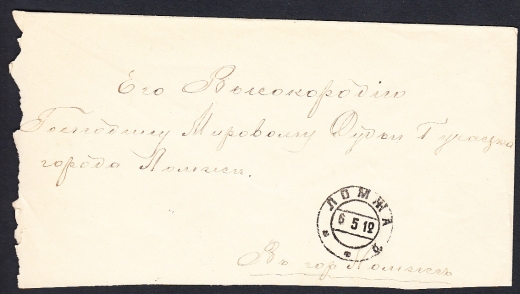 Его Высокородію
Господину Мировому Судьи
города Ломжи.
ЛОМЖА
6 5 12
Въ гор Ломжѣ